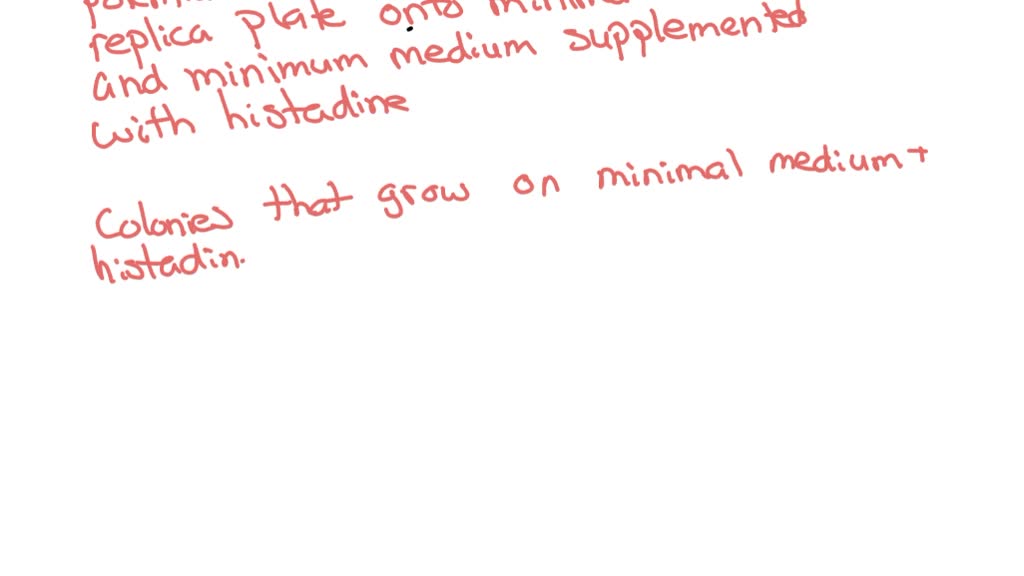 replica plate onto
and minimum medium supplemented
with histadine
Colonies that grow on minimal medium +
histadin.